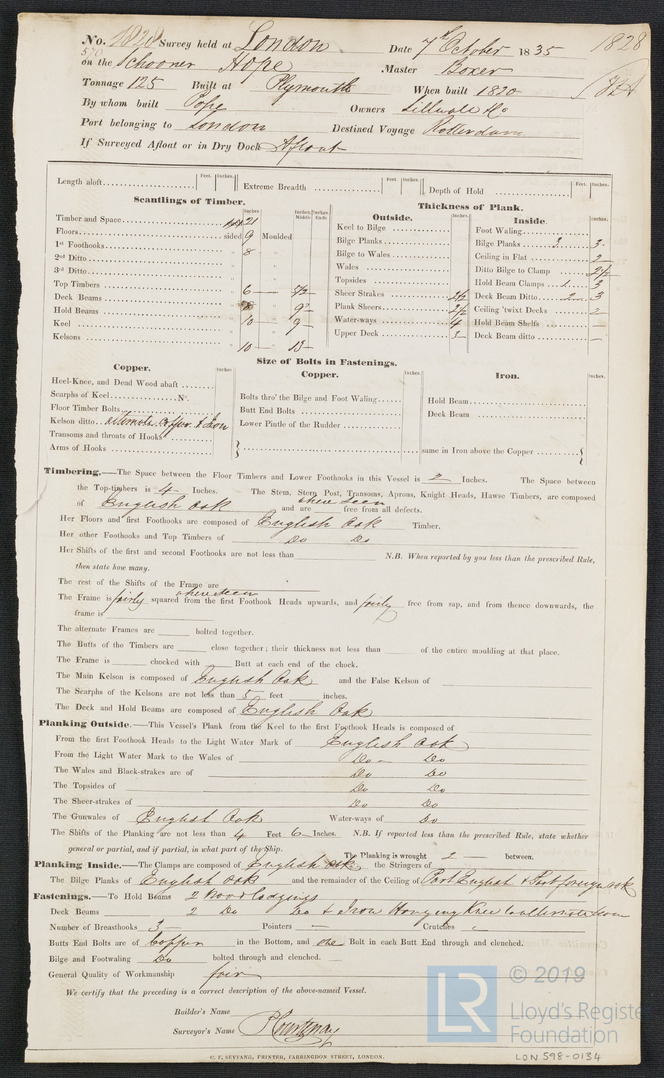 No. 1828 Survey held at London Date 7th October 1835 1828
570
on the Schooner Hope Master Boxer
Tonnage 125 Built at Plymouth When built 1820
By whom built Pope Owners
Port belonging to London Destined Voyage Rotterdam
If Surveyed Afloat or in Dry Dock Afloat
Length aloft Feet. Inches. Extreme Breadth Feet. Inches. Depth of Hold Feet. Inches.
Scantlings of Timber.
Inches. Inches. Middle Inches. Ends
Timber and Space 21
Floors sided 9 Moulded
1st Foothooks 8
2nd Ditto
3rd Ditto
Top Timbers 6
Deck Beams 9
Hold Beams 10 9
Keel
Kelsons 10 13
Thickness of Plank.
Outside. Inches.
Keel to Bilge
Bilge Planks
Bilge to Wales
Wales
Topsides
Sheer Strakes 2½
Plank Sheers 2½
Water-ways 4
Upper Deck 3
Inside. Inches.
Foot Waling
Bilge Planks 2 3
Ceiling in Flat 2
Ditto Bilge to Clamp 2½
Hold Beam Clamps 1 3
Deck Beam Ditto 2 3
Ceiling 'twixt Decks 2
Hold Beam Shelfs —
Deck Beam ditto —
Size of Bolts in Fastenings.
Copper. Inches.
Heel-Knee, and Dead Wood abaft
Scarphs of Keel No.
Floor Timber Bolts
Kelson ditto alternate Copper & Iron
Transoms and throats of Hooks
Arms of Hooks
Copper. Inches.
Bolts thro' the Bilge and Foot Waling
Butt End Bolts
Lower Pintle of the Rudder
Iron. Inches.
Hold Beam
Deck Beam
same in Iron above the Copper
Timbering.—The Space between the Floor Timbers and Lower Foothooks in this Vessel is 2 Inches. The Space between
the Top-timbers is 4 Inches. The Stem, Stern Post, Transoms, Aprons, Knight Heads, Hawse Timbers, are composed
of English Oak and are where seen free from all defects.
Her Floors and first Foothooks are composed of English Oak Timber.
Her other Foothooks and Top Timbers of Do Do
Her Shifts of the first and second Foothooks are not less than N.B. When reported by you less than the prescribed Rule,
then state how many.
The rest of the Shifts of the Frame are
The Frame is fairly squared where seen from the first Foothook Heads upwards, and fairly free from sap, and from thence downwards, the
frame is
The alternate Frames are bolted together.
The Butts of the Timbers are close together; their thickness not less than of the entire moulding at that place.
The Frame is chocked with Butt at each end of the chock.
The Main Kelson is composed of English Oak and the False Kelson of
The Scarphs of the Kelsons are not less than 5 feet inches.
The Deck and Hold Beams are composed of English Oak
Planking Outside.—This Vessel's Plank from the Keel to the first Foothook Heads is composed of
From the first Foothook Heads to the Light Water Mark of English Oak
From the Light Water Mark to the Wales of Do Do
The Wales and Black-strakes are of Do Do
The Topsides of Do Do
The Sheer-strakes of Do Do
The Gunwales of English Oak Water-ways of Do
The Shifts of the Planking are not less than 4 Feet 6 Inches. N.B. If reported less than the prescribed Rule, state whether
general or partial, and if partial, in what part of the Ship. The Planking is wrought 2 between.
Planking Inside.—The Clamps are composed of English Oak the Stringers of
The Bilge Planks of English Oak and the remainder of the Ceiling of Part English & Part foreign oak
Fastenings.—To Hold Beams 2 Wood lodgings
Deck Beams 2 Do Do & Iron Hanging Knee
Number of Breasthooks 3 Pointers — Crutches
Butts End Bolts are of Copper in the Bottom, and one Bolt in each Butt End through and clenched.
Bilge and Footwaling Do bolted through and clenched.
General Quality of Workmanship fair
We certify that the preceding is a correct description of the above-named Vessel.
Builder's Name
Surveyor's Name P Courtenay
C. F. SEYFANG, PRINTER, FARRINGDON STREET, LONDON.
LR © 2019
Lloyd's Register
Foundation
LON 598-0134